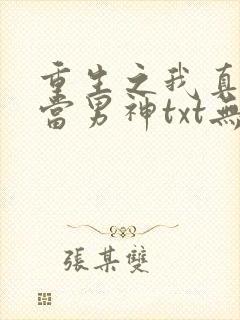 重生之我真
當男神txt無
張某雙